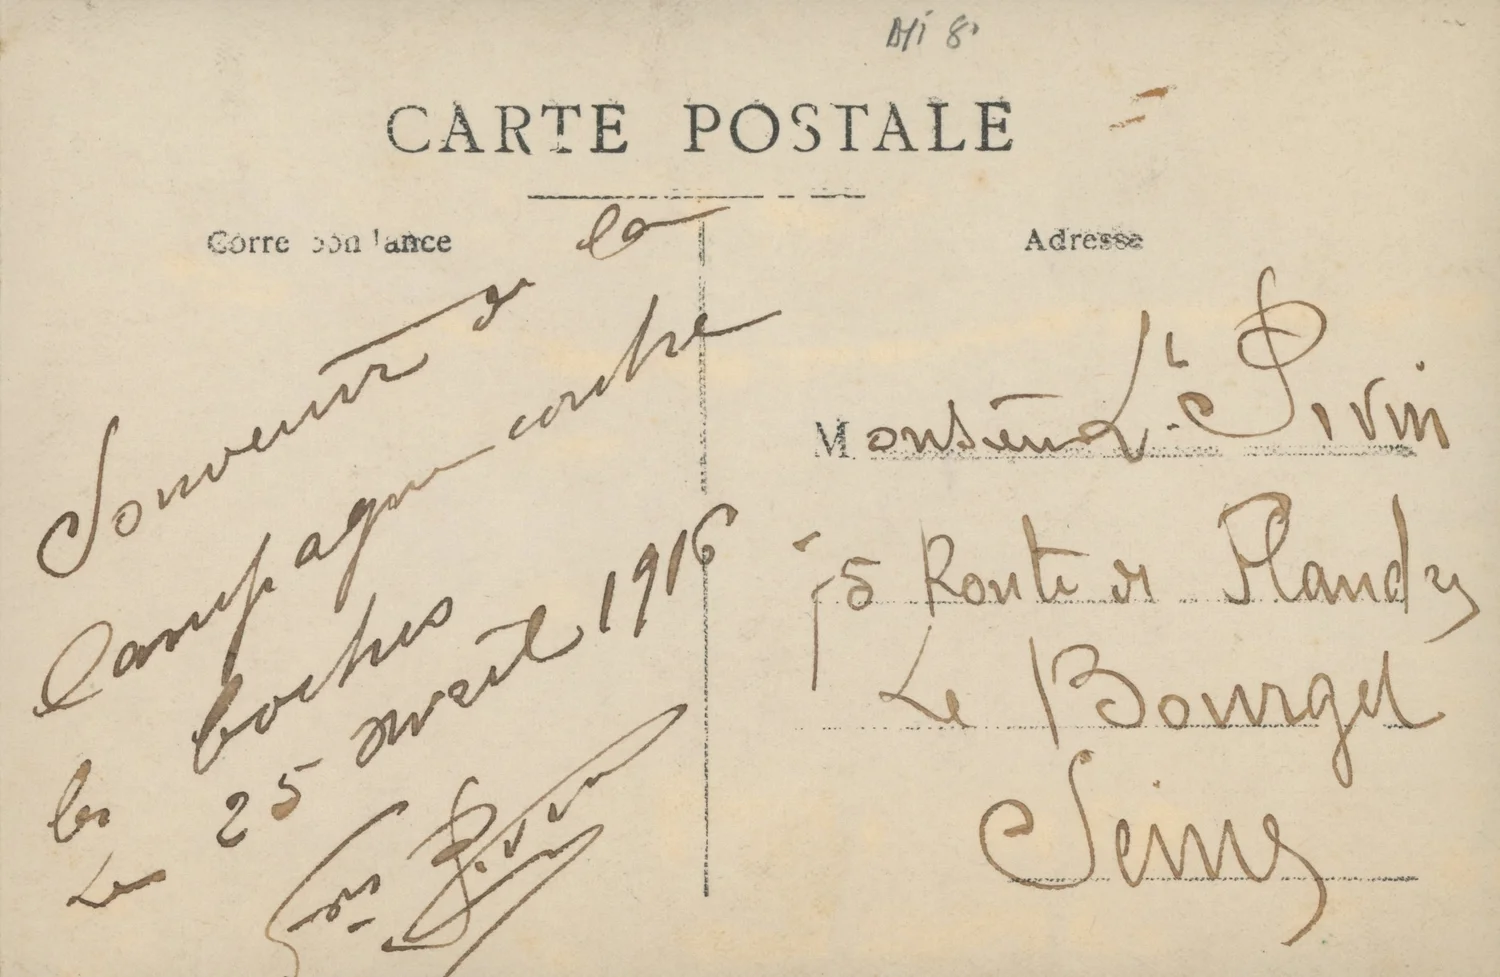 CARTE POSTALE
Correspondance
Adresse
Souvenir de la
Campagne contre
les boches
Le 25 avril 1916
Pivin
Monsieur L. Pivin
75 Route de Flandres
Le Bourget
Seine